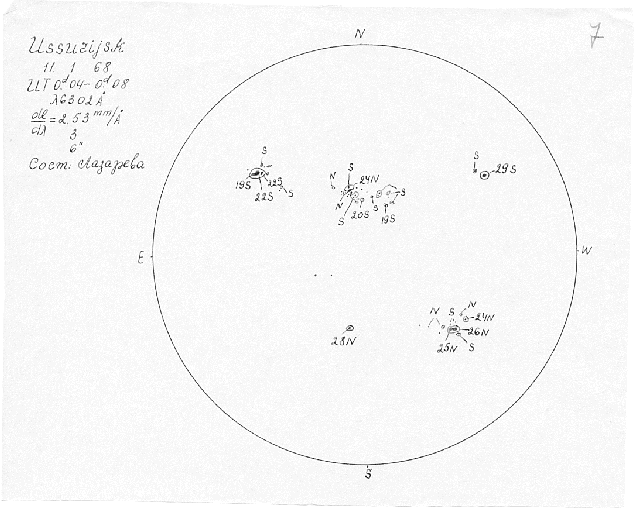 7
N
Ussurijsk
11 1 68
UT 0.ᵈ04 - 0.ᵈ08
λ6302 Å
dl/dλ = 2.53 mm/Å
3
6"
Сост. Лазарева
S
19S 22S
22S S
S
N 24N
N S
S 20S S 19S
S
29S
E
W
N S N
24N
26N
25N S
28N
S